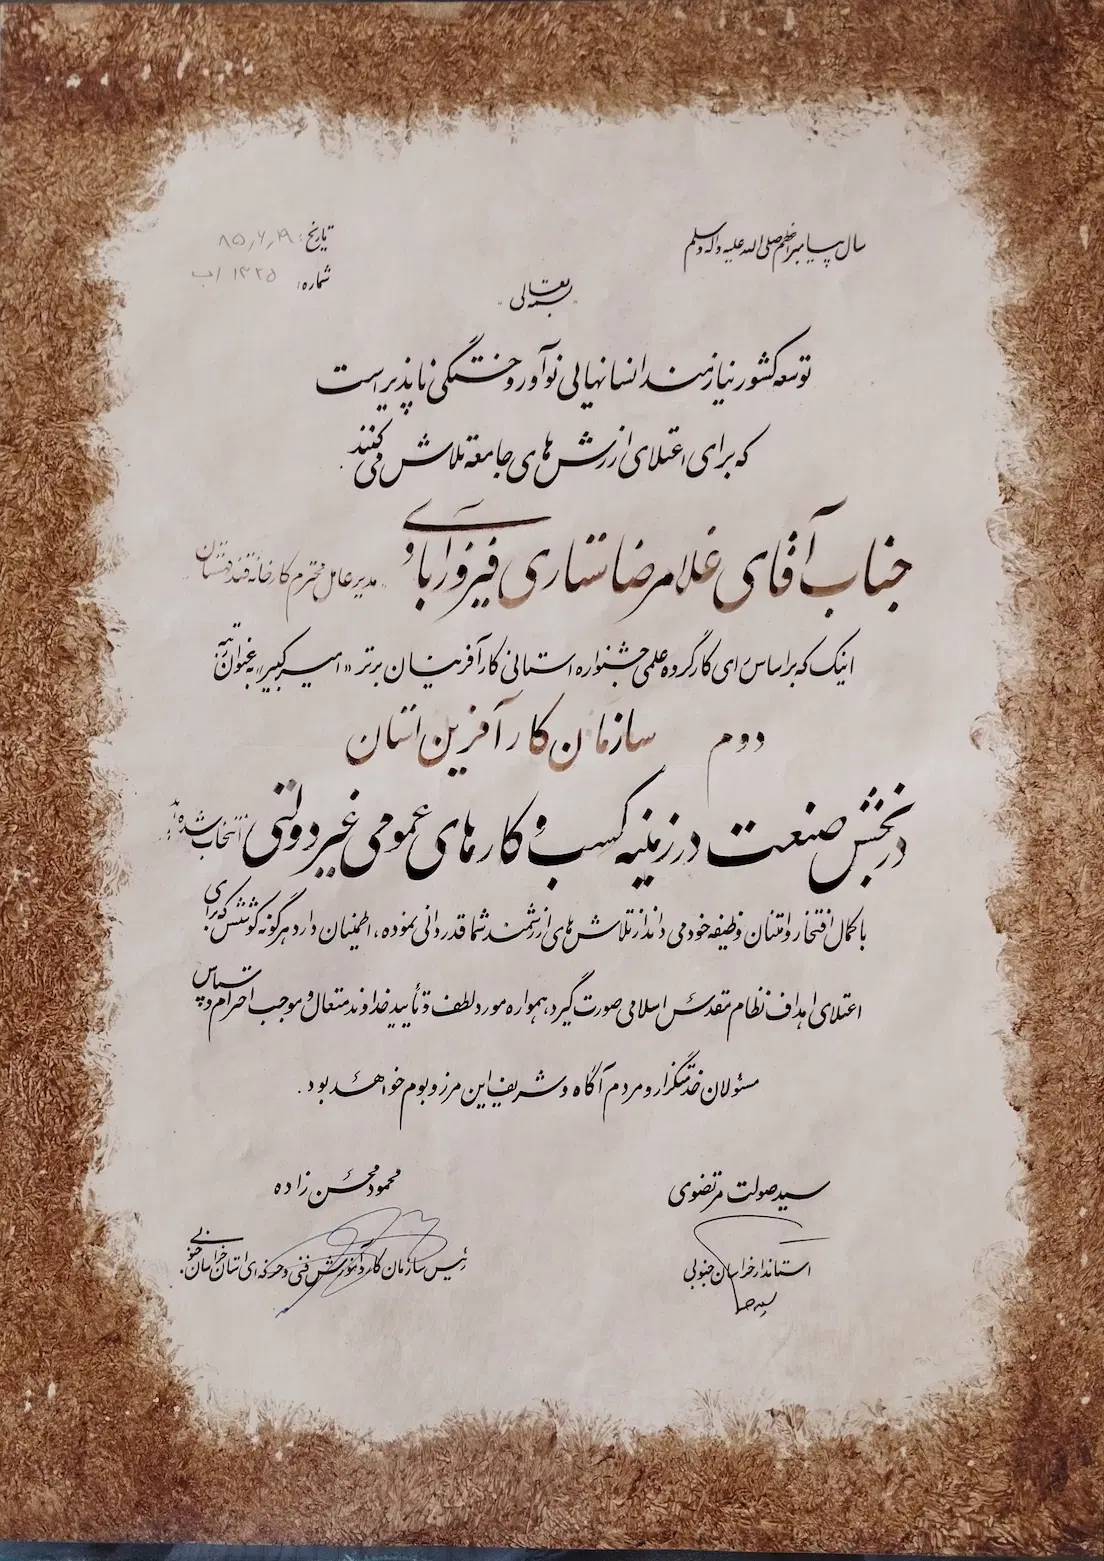 سال پیامبر اعظم صلی الله علیه و آله و سلم
تاریخ: ۸۵٫۶٫۱۹
شماره: ۱۳۲۵ /ب
بسمه تعالی
توسعه کشور نیازمند انسانهایی نوآور و خستگی ناپذیر است
که برای اعتلای ارزش های جامعه تلاش می کنند.
جناب آقای غلامرضا نثاری فیروزآبادی مدیر عامل محترم کارخانه قند قهستان
اینک که بر اساس رای کارگروه علمی جشنواره استانی کارآفرینان برتر «امیرکبیر» به عنوان رتبه
دوم سازمان کارآفرین استان
در بخش صنعت در زمینه کسب و کارهای عمومی غیردولتی انتخاب شده اند
با کمال افتخار و امتنان وظیفه خود می داند از تلاش های ارزشمند شما قدردانی نموده، اطمینان دارد هرگونه کوشش که برای
اعتلای اهداف نظام مقدس اسلامی صورت گیرد، همواره مورد لطف و تأیید خداوند متعال و موجب احترام و سپاس
مسئولان خدمتگزار و مردم آگاه و شریف این مرز و بوم خواهد بود.
سید صولت مرتضوی
محمود محسن زاده
استاندار خراسان جنوبی
رئیس سازمان کار و آموزش فنی و حرفه ای استان خراسان جنوبی